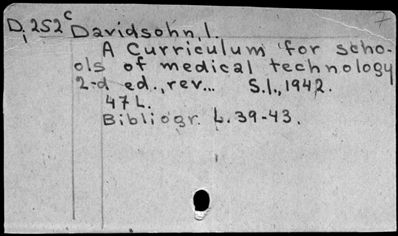 D, 252c Davidsohn, I.
A Curriculum for scho-
ols of medical technology
2-d ed., rev... S.l., 1942.
47 L.
Bibliogr. L. 39-43.